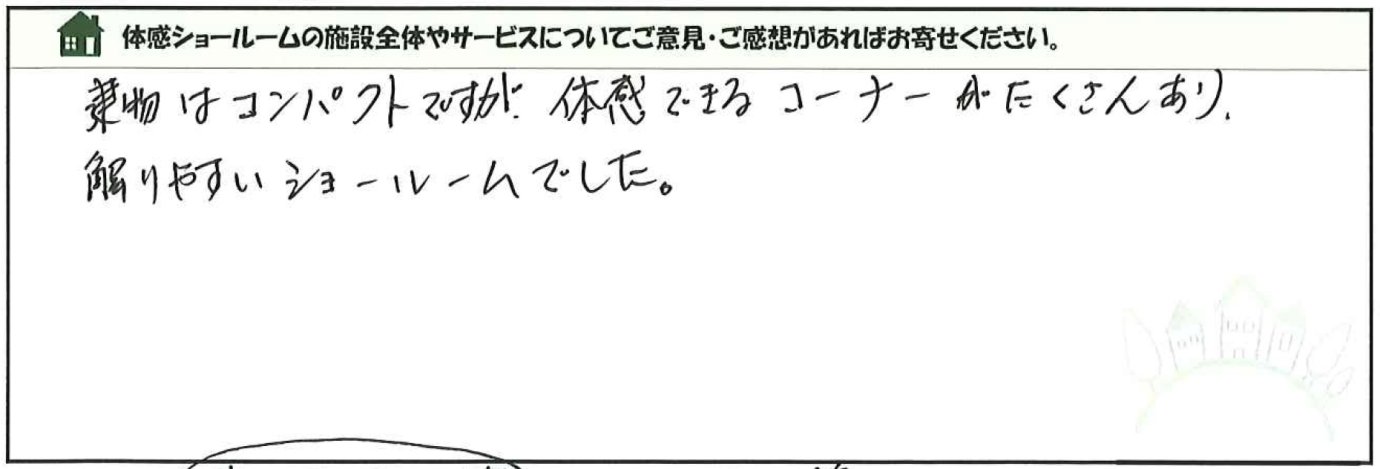 体感ショールームの施設全体やサービスについてご意見・ご感想があればお寄せください。
建物はコンパクトですが、体感できるコーナーがたくさんあり、
解りやすいショールームでした。